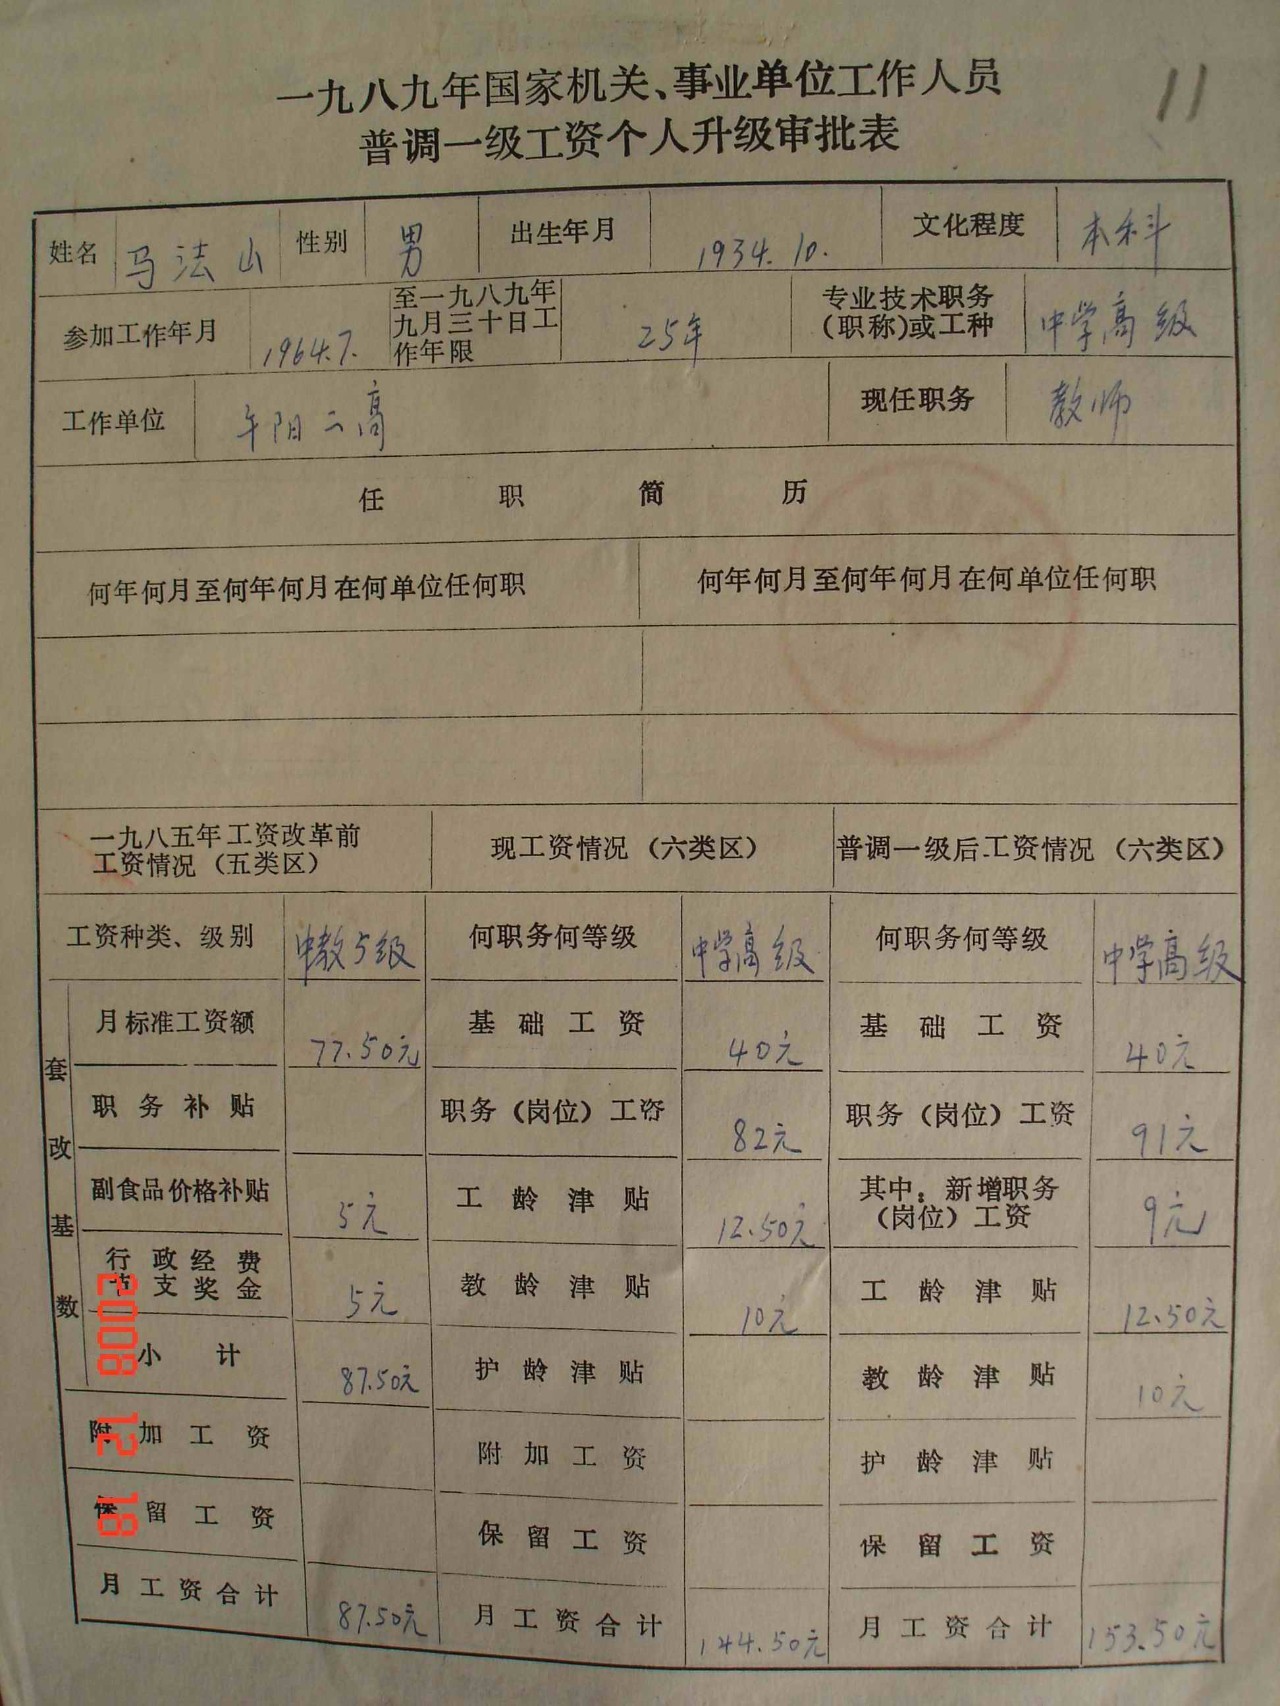 一九八九年国家机关、事业单位工作人员
11
普调一级工资个人升级审批表
姓名 马法山 性别 男 出生年月 1934.10. 文化程度 本科
参加工作年月 1964.7. 至一九八九年九月三十日工作年限 25年 专业技术职务(职称)或工种 中学高级
工作单位 午阳二高 现任职务 教师
任职简历
何年何月至何年何月在何单位任何职 何年何月至何年何月在何单位任何职
一九八五年工资改革前工资情况（五类区） 现工资情况（六类区） 普调一级后工资情况（六类区）
工资种类、级别 中教5级 何职务何等级 中学高级 何职务何等级 中学高级
套改基数
月标准工资额 77.50元 基础工资 40元 基础工资 40元
职务补贴 职务（岗位）工资 82元 职务（岗位）工资 91元
副食品价格补贴 5元 工龄津贴 12.50元 其中：新增职务（岗位）工资 9元
行政经费节支奖金 5元 教龄津贴 10元 工龄津贴 12.50元
小计 87.50元 护龄津贴 教龄津贴 10元
附加工资 附加工资 护龄津贴
保留工资 保留工资 保留工资
月工资合计 87.50元 月工资合计 144.50元 月工资合计 153.50元
2008 12 18